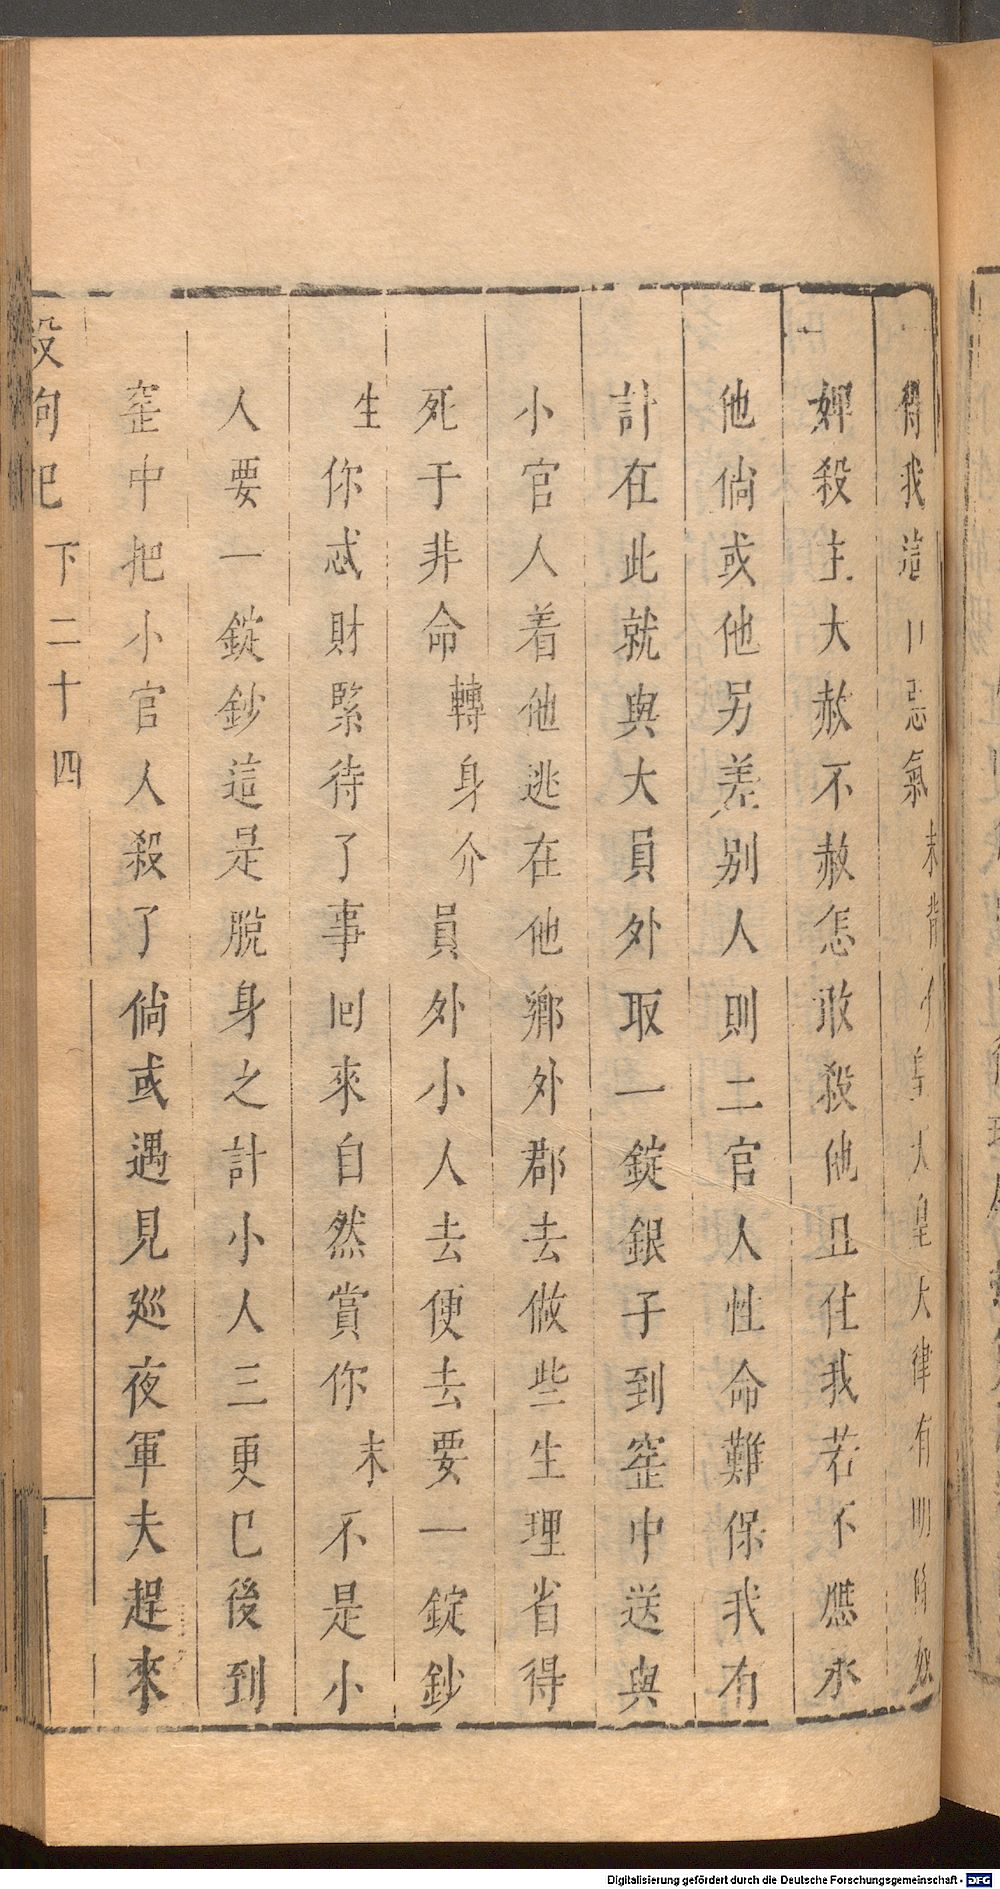 得我這口惡氣末背介皇天皇天律有明條奴
婢殺主大赦不赦怎敢殺他且住我若不應承
他倘或他另差別人則二官人性命難保我有
計在此就與大員外取一錠銀子到窰中送與
小官人着他逃在他鄉外郡去做些生理省得
死于非命轉身介員外小人去便去要一錠鈔
生你忒財緊待了事回來自然賞你末不是小
人要一錠鈔這是脫身之計小人三更已後到
窰中把小官人殺了倘或遇見廵夜軍夫趕來
殺狗記 下二十四
Digitalisierung gefördert durch die Deutsche Forschungsgemeinschaft - DFG